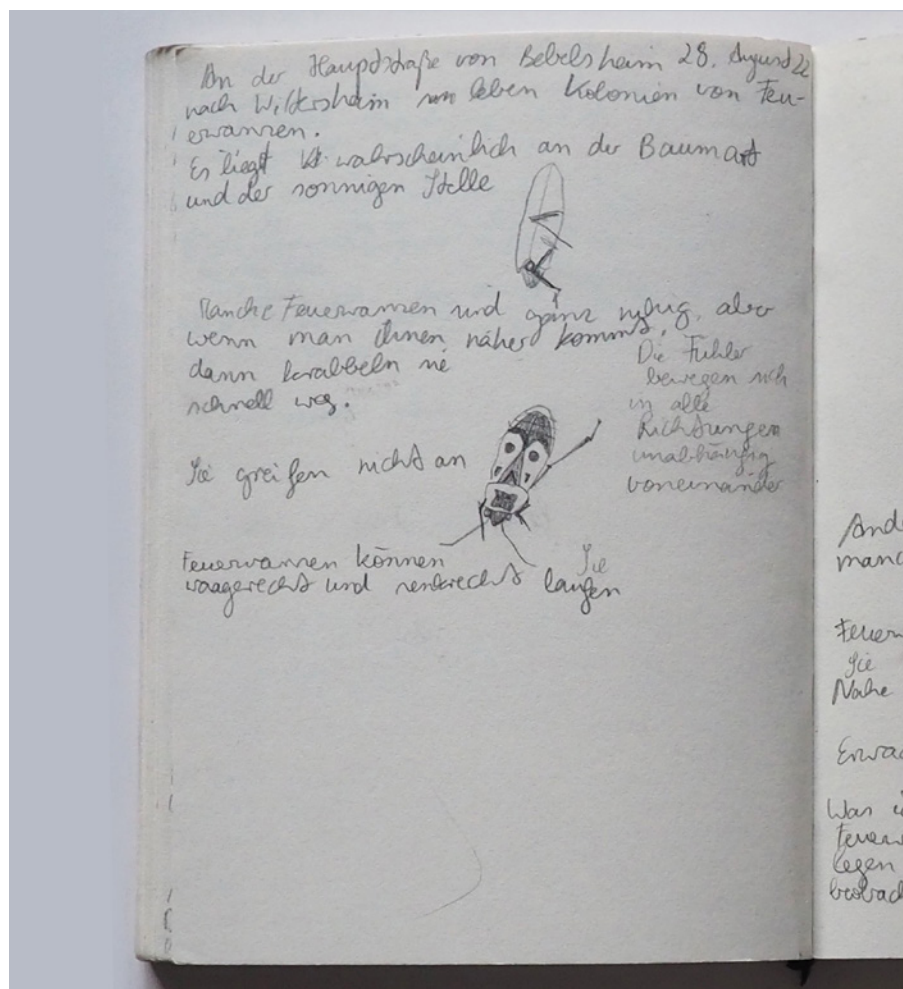 An der Hauptstraße von Bebelsheim 28. August 22
nach Wittersheim leben Kolonien von Feu-
erwanzen.
Es liegt wahrscheinlich an der Baumart
und der sonnigen Stelle
Manche Feuerwanzen sind ganz ruhig, aber
wenn man ihnen näher kommt,
dann krabbeln sie
schnell weg.
Die Fühler
bewegen sich
in alle
Richtungen
unabhängig
voneinander
Sie greifen nicht an
Feuerwanzen können Sie
waagerecht und senkrecht laufen
And
manc
Feuer
Sie
Nahe
Erwac
Was i
Feuerw
legen
beobac